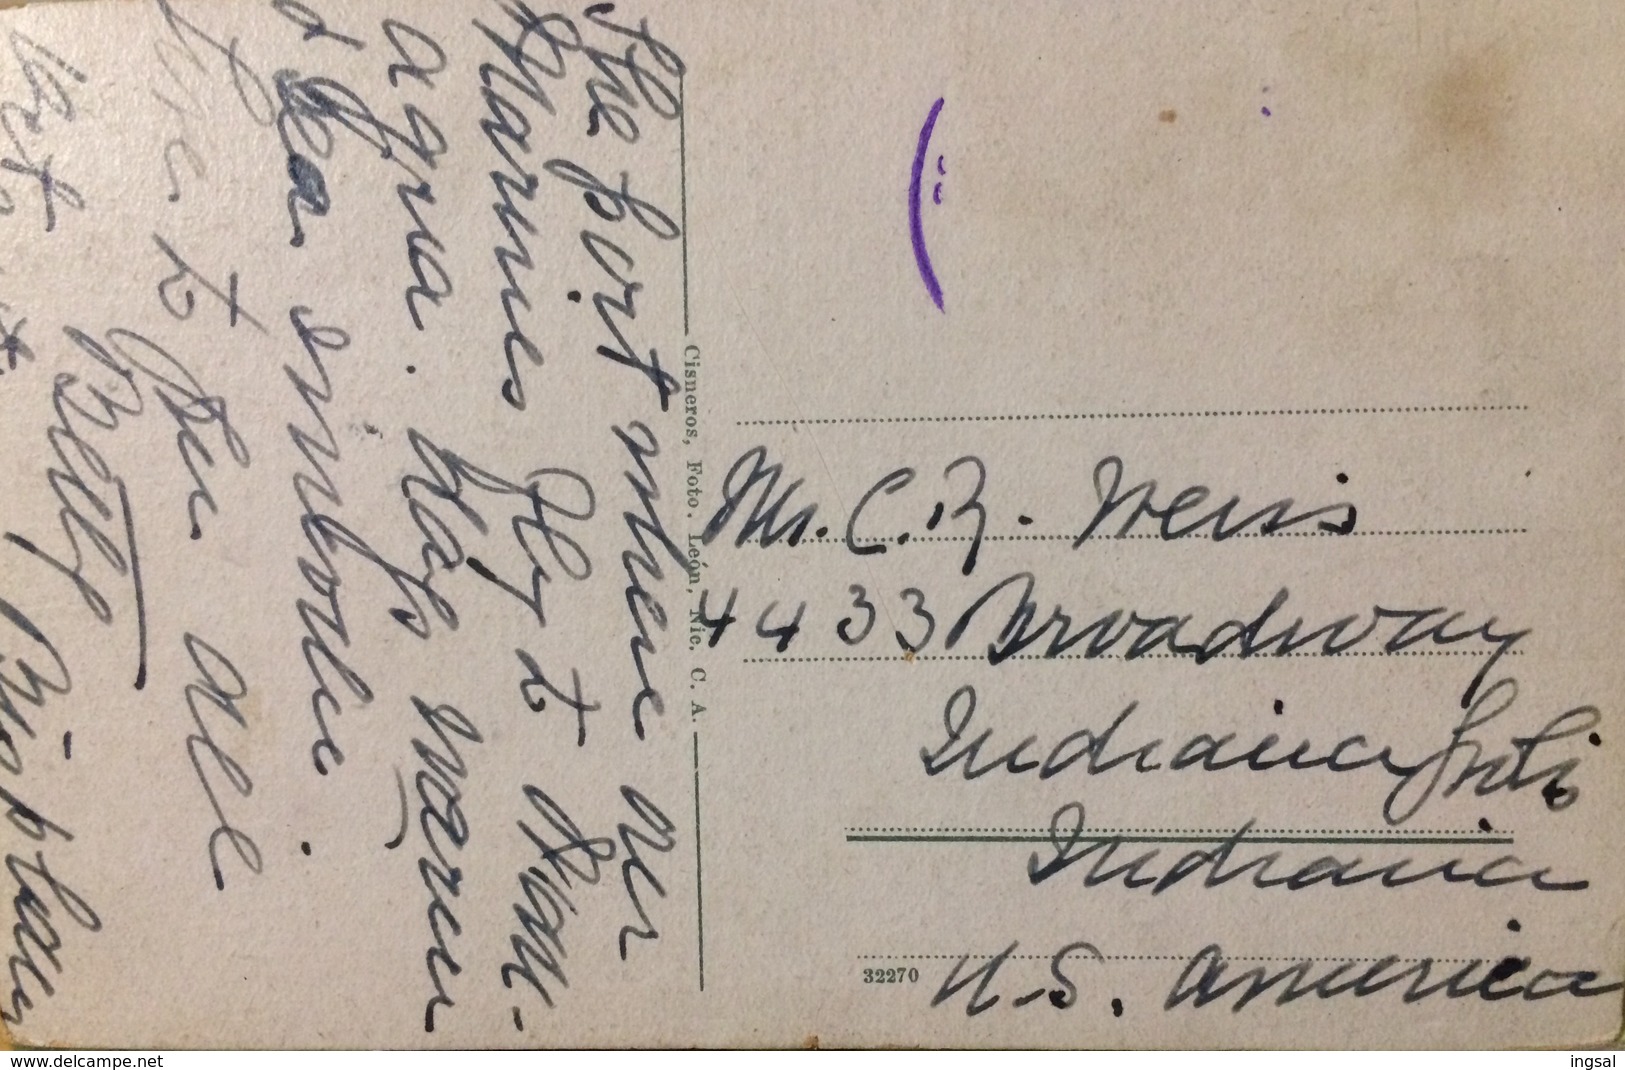 The port where our
Marines fly to Man-
agua. Was warm
a sea
Love to you all
Betty
Cisneros, Foto. León, Nic. C. A.
Mr. C. R. Weiss
4433 Broadway
Indianapolis
Indiana
U.S. America
32270
www.delcampe.net
ingsal